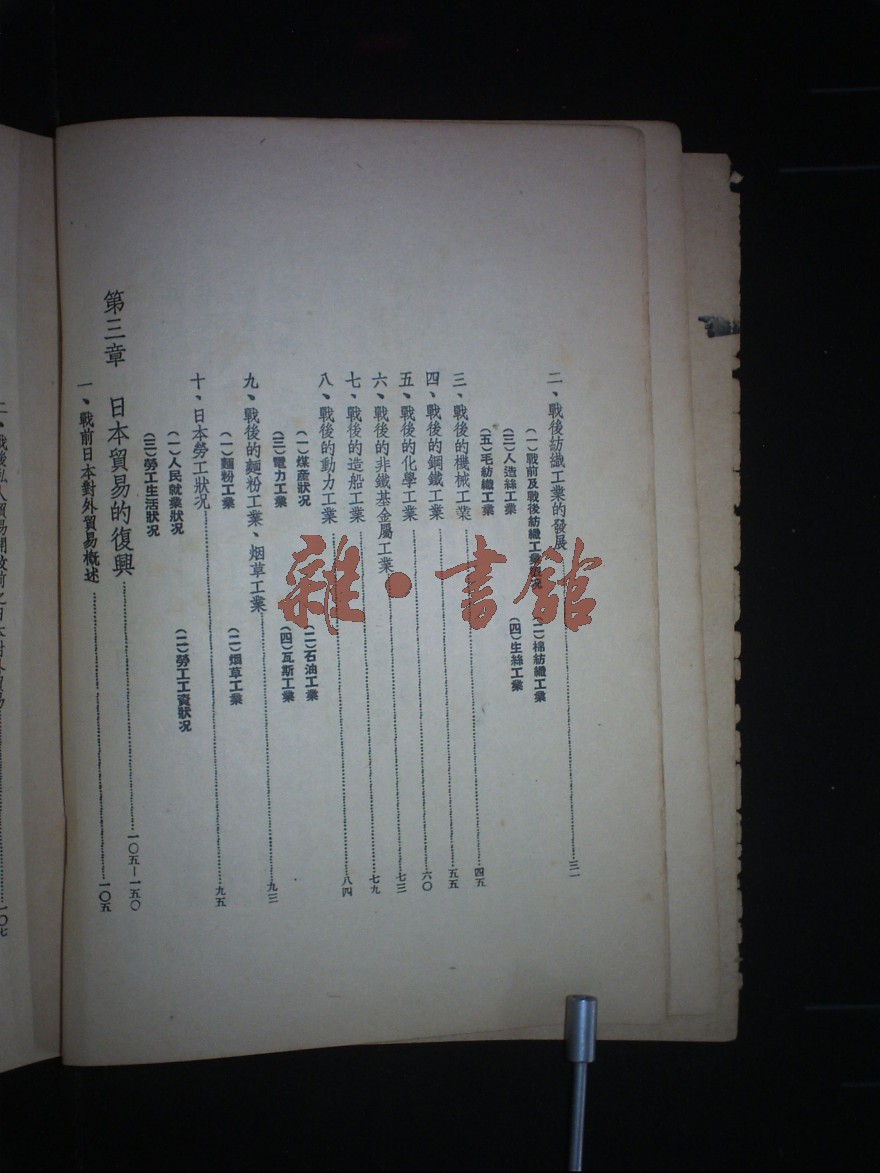 二、戰後紡織工業的發展……三一
(一)戰前及戰後紡織工業概况 (二)棉紡織工業
(三)人造絲工業 (四)生絲工業
(五)毛紡織工業
三、戰後的機械工業……四五
四、戰後的鋼鐵工業……五五
五、戰後的化學工業……六〇
六、戰後的非鐵基金屬工業……七三
七、戰後的造船工業……七九
八、戰後的動力工業……八四
(一)煤産狀况 (二)石油工業
(三)電力工業 (四)瓦斯工業
九、戰後的麵粉工業、烟草工業……九三
(一)麵粉工業 (二)烟草工業
十、日本勞工狀况……九五
(一)人民就業狀况 (二)勞工工資狀况
(三)勞工生活狀况
第三章 日本貿易的復興……一〇五—一五〇
一、戰前日本對外貿易概述……一〇五
二、戰後私人貿易開放前之日本對外貿易……一〇七
雜·書館